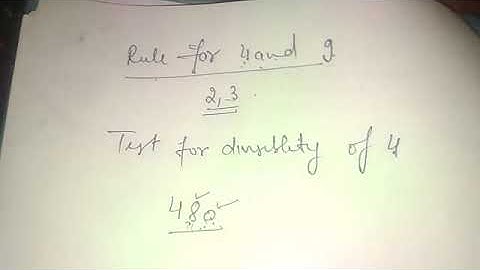 Rule for 4 and 9
2,3
Test for divisiblity of 4
480